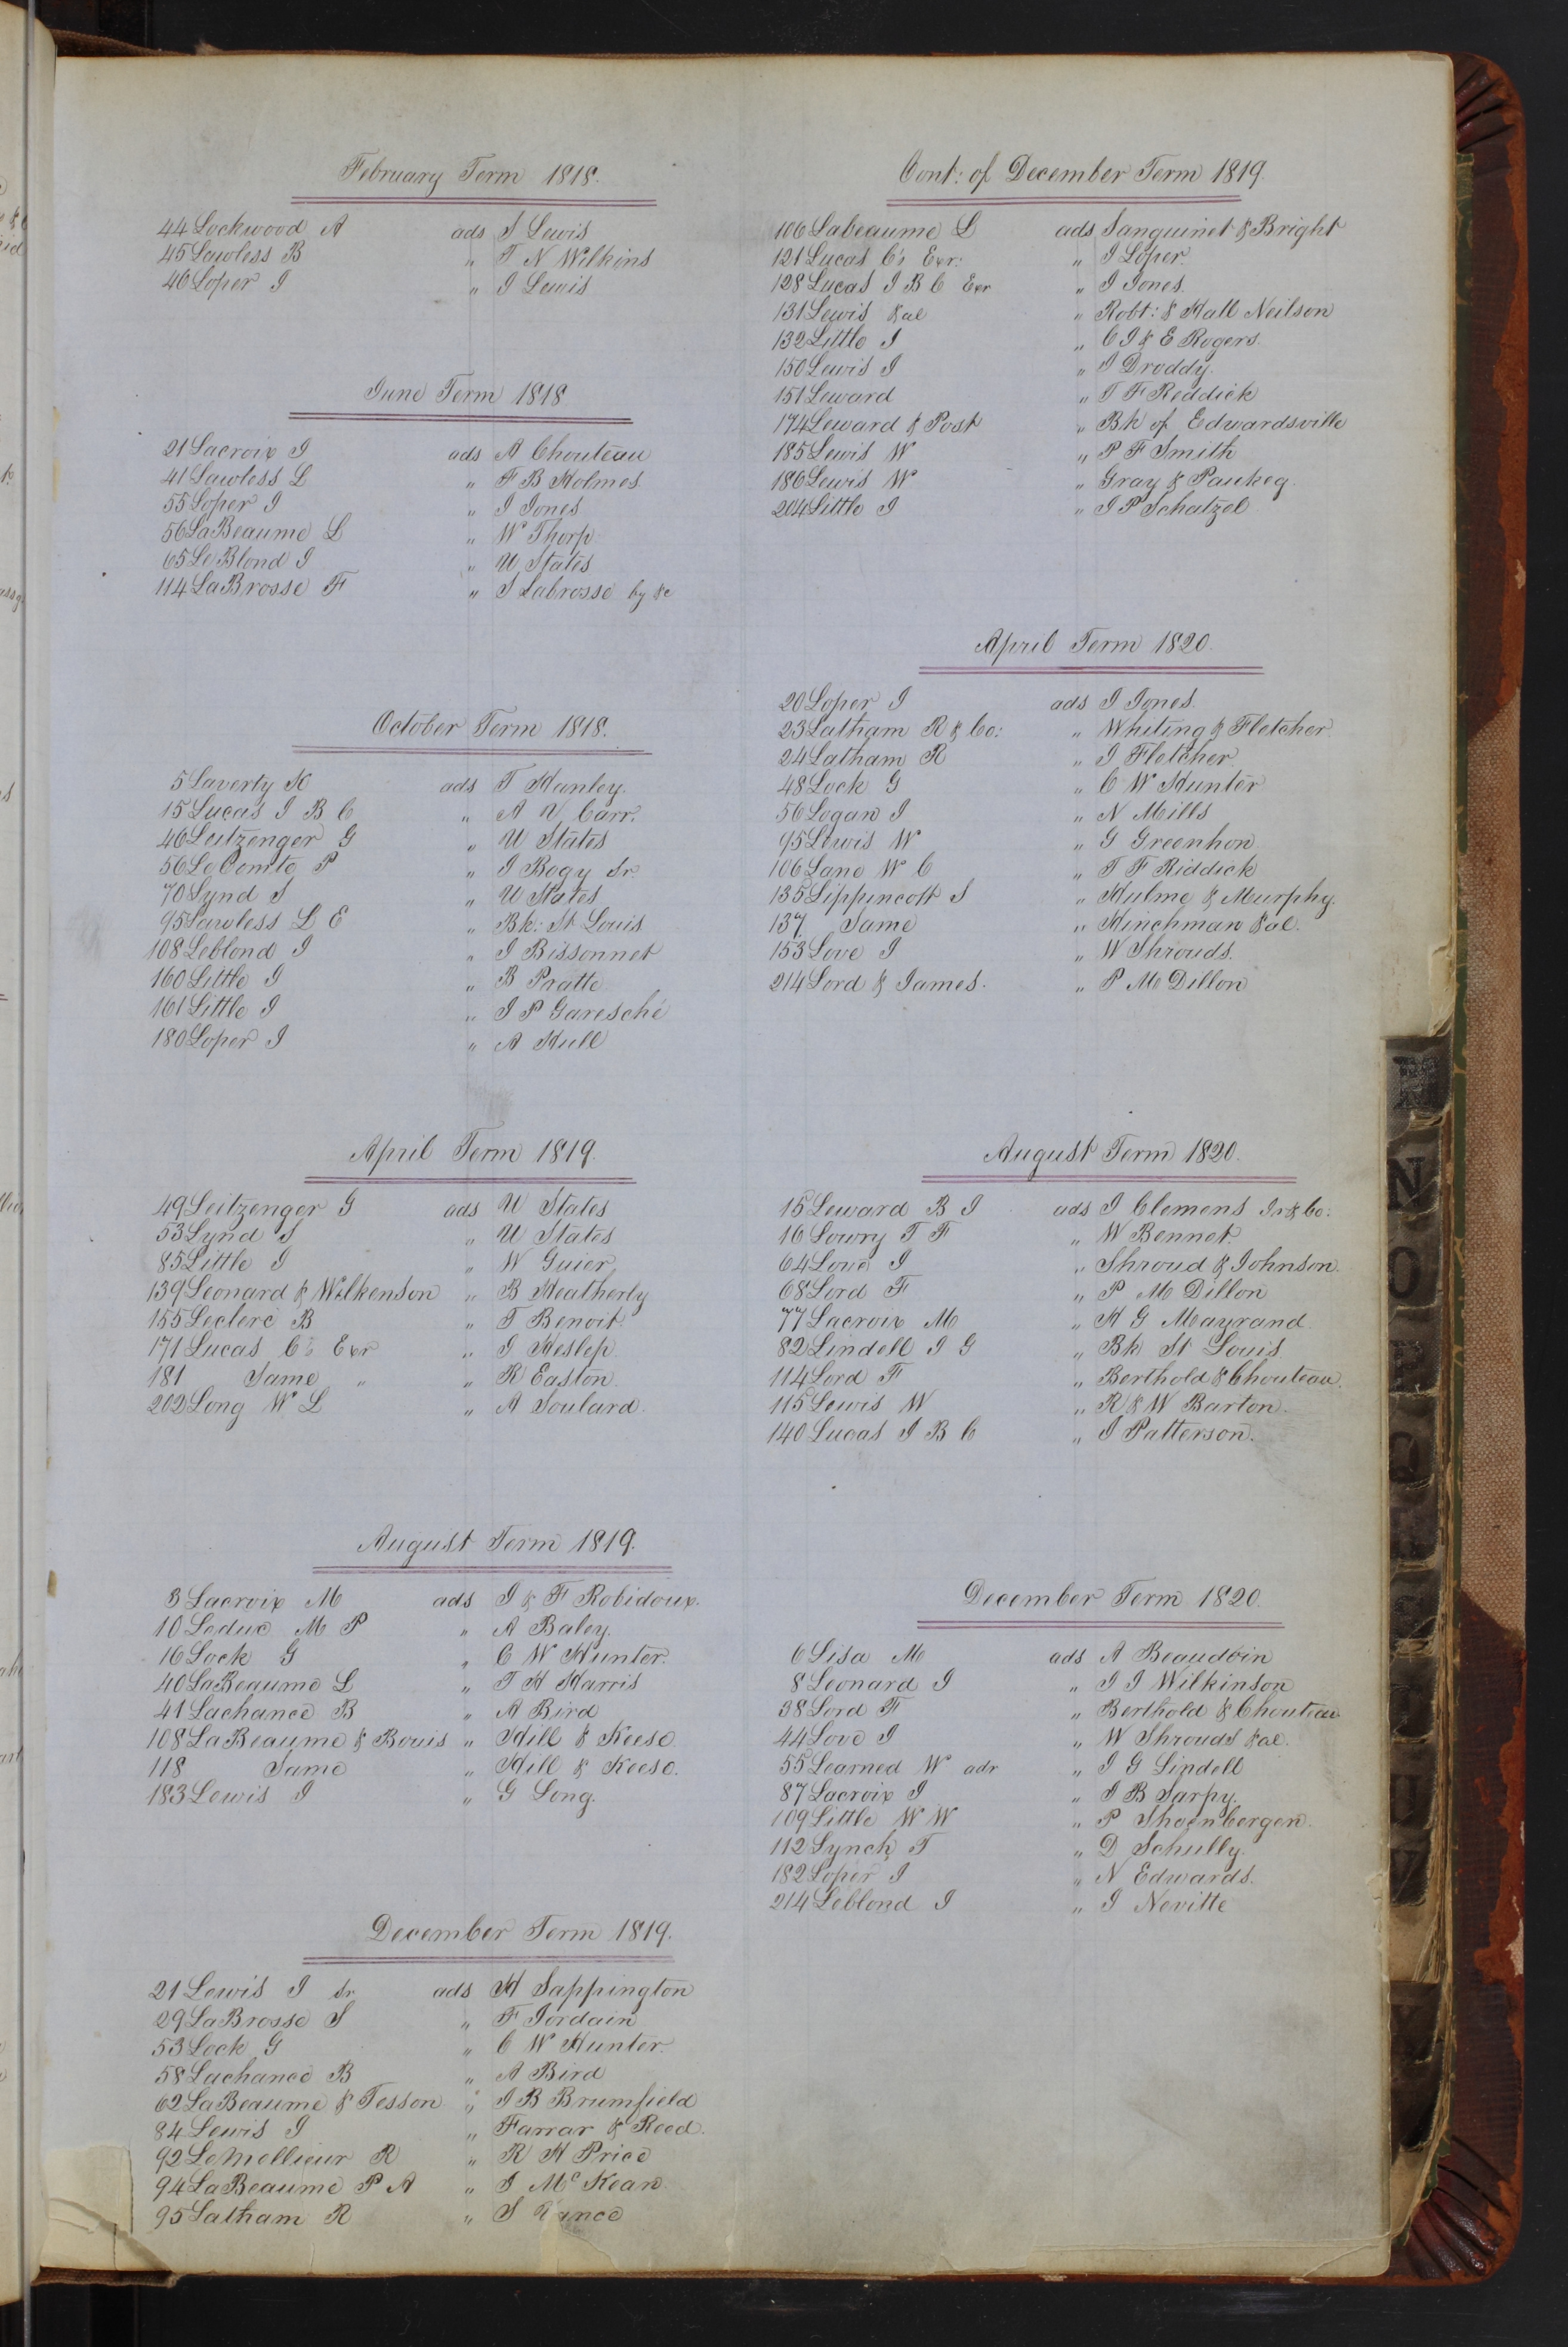 February Term 1818.
44 Lockwood A ads S Lewis
45 Lawless B " T N Wilkins
46 Loper I " I Lewis
June Term 1818
21 Lacroix I ads A Chouteau
41 Lawless L " F B Holmes
55 Loper I " I Jones
56 LaBeaume L " W Thorp
65 LeBlond I " U States
114 LaBrosse F " S Labrosse by &c
October Term 1818.
5 Laverty H ads T Hanley.
15 Lucas I B C " A V Carr.
46 Leitzenger G " U States
56 LeComte P " I Bogy Sr.
70 Lynd S " U States
95 Lawless L E " Bk: St Louis
108 Leblond I " I Bissonnet
160 Little I " B Pratte
161 Little I " I P Garesché
180 Loper I " A Hull
April Term 1819.
49 Leitzenger G ads U States
53 Lynd S " U States
85 Little I " W Guier
139 Leonard & Wilkenson " B Heatherly
155 Leclerc B " T Benoit.
171 Lucas C's Exr " I Heslep
181 Same " " R Easton.
202 Long W L " A Soulard.
August Term 1819.
3 Lacroix M ads I & F Robidoux.
10 Leduc M P " A Baley.
16 Lock G " C W Hunter.
40 LaBeaume L " T H Harris
41 Lachance B " A Bird
108 LaBeaume & Bouis " Hill & Keese.
118 Same " Hill & Keese.
183 Lewis I " G Long.
December Term 1819.
21 Lewis I Sr ads H Sappington
29 LaBrosse S " F Jordain
53 Lock G " C W Hunter.
58 Lachance B " A Bird
62 LaBeaume & Tesson " I B Brumfield
84 Lewis I " Farrar & Reed.
92 LeMellieur R " R H Price
94 LaBeaume P A " I McKean.
95 Latham R " S
Cont: of December Term 1819.
106 Labeaume L ads Sanguinet & Bright
121 Lucas C's Exr: " I Loper.
128 Lucas I B C Exr " I Jones.
131 Lewis &al " Robt: & Hall Neilson
132 Little I " C I & E Rogers.
150 Lewis I " I Droddy.
151 Leward " T F Reddick
174 Leward & Post " Bk of Edwardsville
185 Lewis W " P F Smith
186 Lewis W " Gray & Paukeg.
204 Little I " I P Schatzel
April Term 1820.
20 Loper I ads I Jones.
23 Latham R & Co: " Whiting & Fletcher.
24 Latham R " I Fletcher
48 Lock G " C W Hunter
56 Logan I " N Mills
95 Lewis W " G Greenhon
106 Lane W C " T F Riddick
135 Lippincott S " Hulme & Murphy.
137 Same " Hinchman &al.
153 Love I " W Shrouds.
214 Lord & James. " P M Dillon
August Term 1820.
15 Leward B I ads I Clemens Jr & Co:
16 Lowry T F " W Bennet.
64 Love I " Shroud & Johnson.
68 Lord F " P M Dillon
77 Lacroix M " H G Mayrand.
82 Lindell I G " Bk St Louis.
114 Lord F " Berthold & Chouteau.
115 Lewis W " R & W Barton.
140 Lucas I B C " I Patterson.
December Term 1820.
6 Lisa M ads A Beaudoin
8 Leonard I " I I Wilkinson
38 Lord F " Berthold & Chouteau
44 Love I " W Shrouds &al.
55 Learned W adr " I G Lindell
87 Lacroix I " I B Sarpy.
109 Little W W " P Shoenbergen.
112 Lynch T " D Schully.
182 Loper I " N Edwards.
214 Leblond I " I Nevitte
N
O